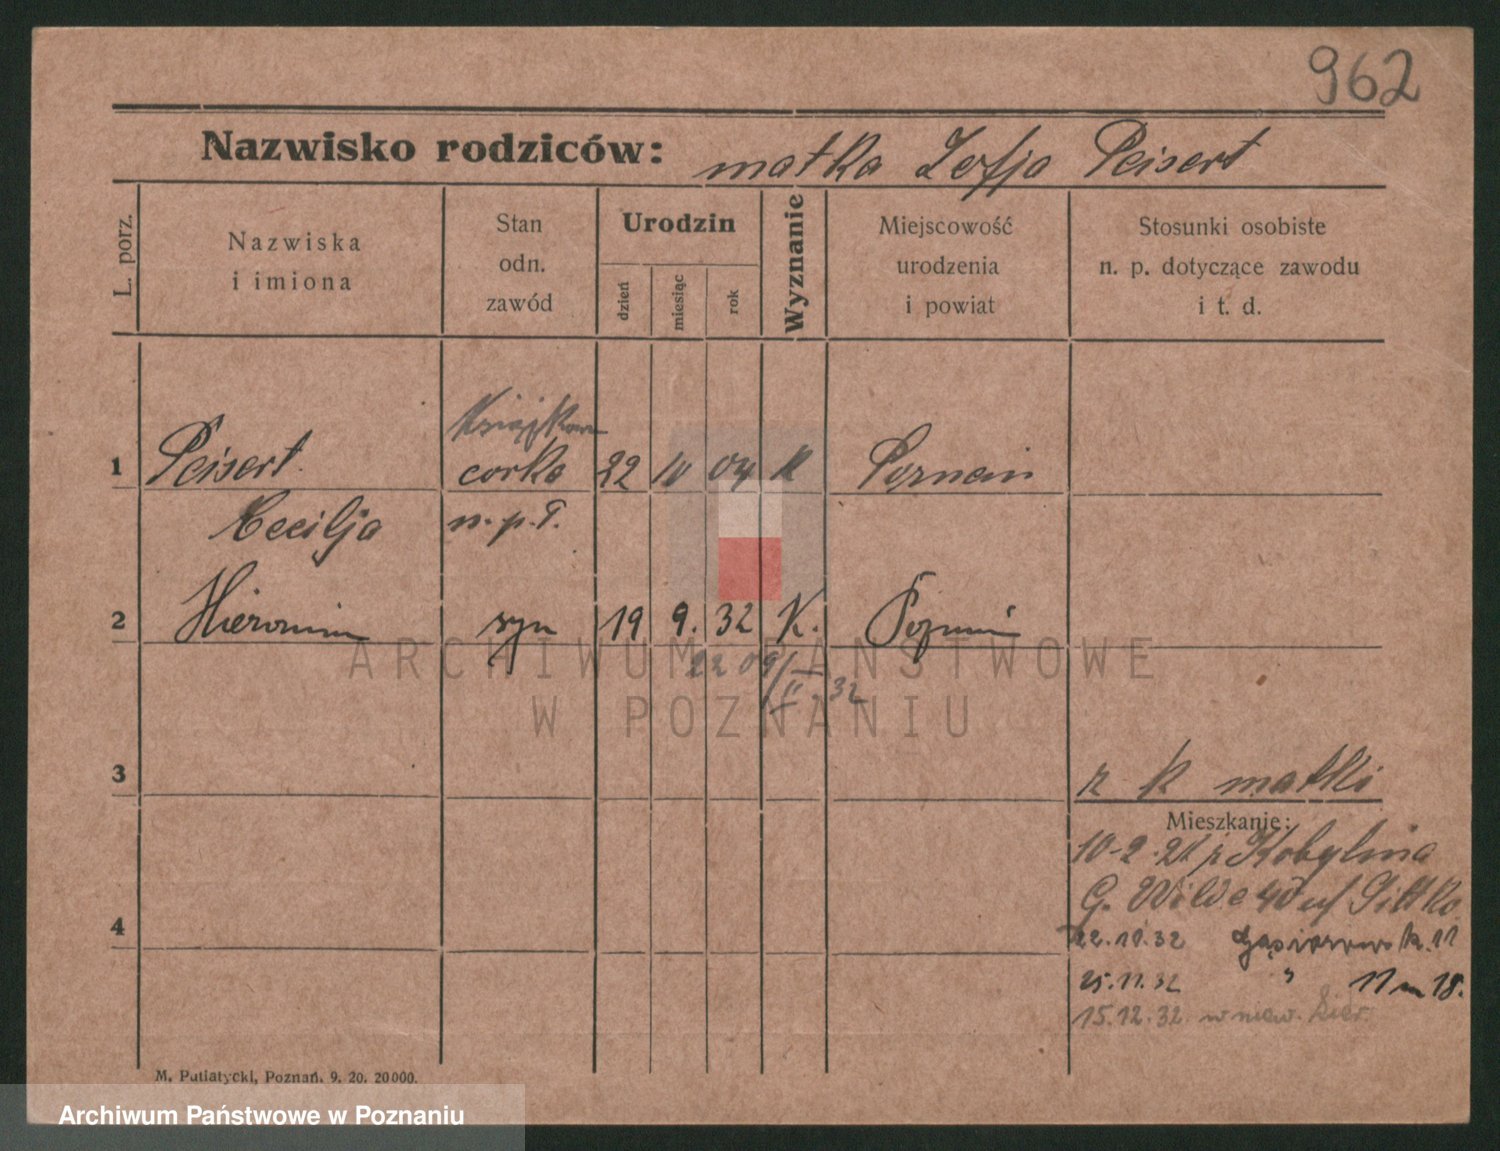 962
Nazwisko rodziców: matka Zofja Peisert
L. porz.
Nazwiska
i imiona
Stan
odn.
zawód
Urodzin
dzień
miesiąc
rok
Wyznanie
Miejscowość
urodzenia
i powiat
Stosunki osobiste
n. p. dotyczące zawodu
i t. d.
1 Peisert córka 22 10 04 K Poznań
Cecilja n. p. T.
2 Hieronim syn 19 9. 32 K. Poznań
ARCHIWUM PAŃSTWOWE
W POZNANIU
32
3 z k matki
Mieszkanie:
10-2-21 z Kobylina
G. Wilde 40 uf Sittko
4 22.10.32 Gąsiorowsk. 11
25.11.32 " 11 m 18.
15.12.32 w niew.
M. Putiatycki, Poznań. 9. 20. 20000.
Archiwum Państwowe w Poznaniu